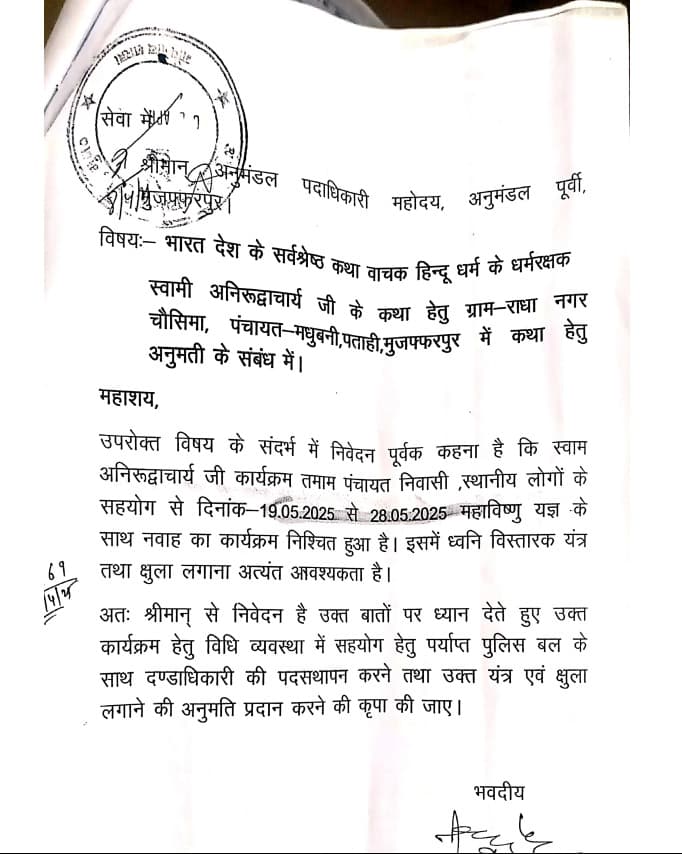 सेवा में
श्रीमान् अनुमंडल पदाधिकारी महोदय, अनुमंडल पूर्वी,
मुजफ्फरपुर।
विषयः– भारत देश के सर्वश्रेष्ठ कथा वाचक हिन्दू धर्म के धर्मरक्षक
स्वामी अनिरूद्वाचार्य जी के कथा हेतु ग्राम–राधा नगर
चौसिमा, पंचायत–मधुबनी,पताही,मुजफ्फरपुर में कथा हेतु
अनुमती के संबंध में।
महाशय,
उपरोक्त विषय के संदर्भ में निवेदन पूर्वक कहना है कि स्वाम
अनिरूद्वाचार्य जी कार्यक्रम तमाम पंचायत निवासी ,स्थानीय लोगों के
सहयोग से दिनांक–19.05.2025 से 28.05.2025 महाविष्णु यज्ञ के
साथ नवाह का कार्यक्रम निश्चित हुआ है। इसमें ध्वनि विस्तारक यंत्र
तथा क्षुला लगाना अत्यंत आवश्यकता है।
69
अतः श्रीमान् से निवेदन है उक्त बातों पर ध्यान देते हुए उक्त
कार्यक्रम हेतु विधि व्यवस्था में सहयोग हेतु पर्याप्त पुलिस बल के
साथ दण्डाधिकारी की पदसथापन करने तथा उक्त यंत्र एवं क्षुला
लगाने की अनुमति प्रदान करने की कृपा की जाए।
भवदीय